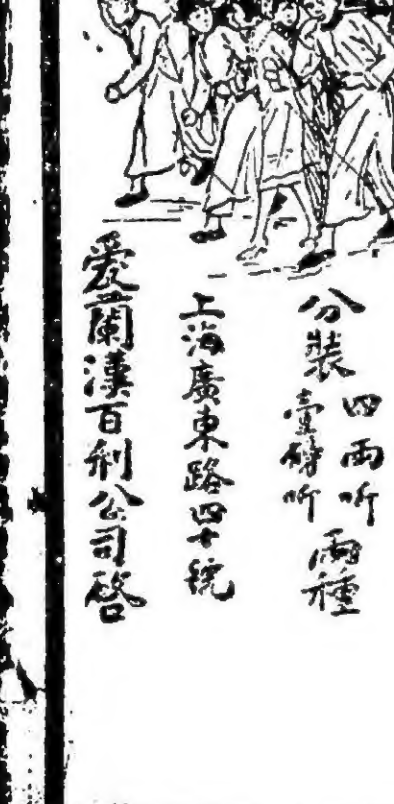 分裝四兩听壹磅听兩種
上海廣東路四十號
愛蘭漢百利公司啓